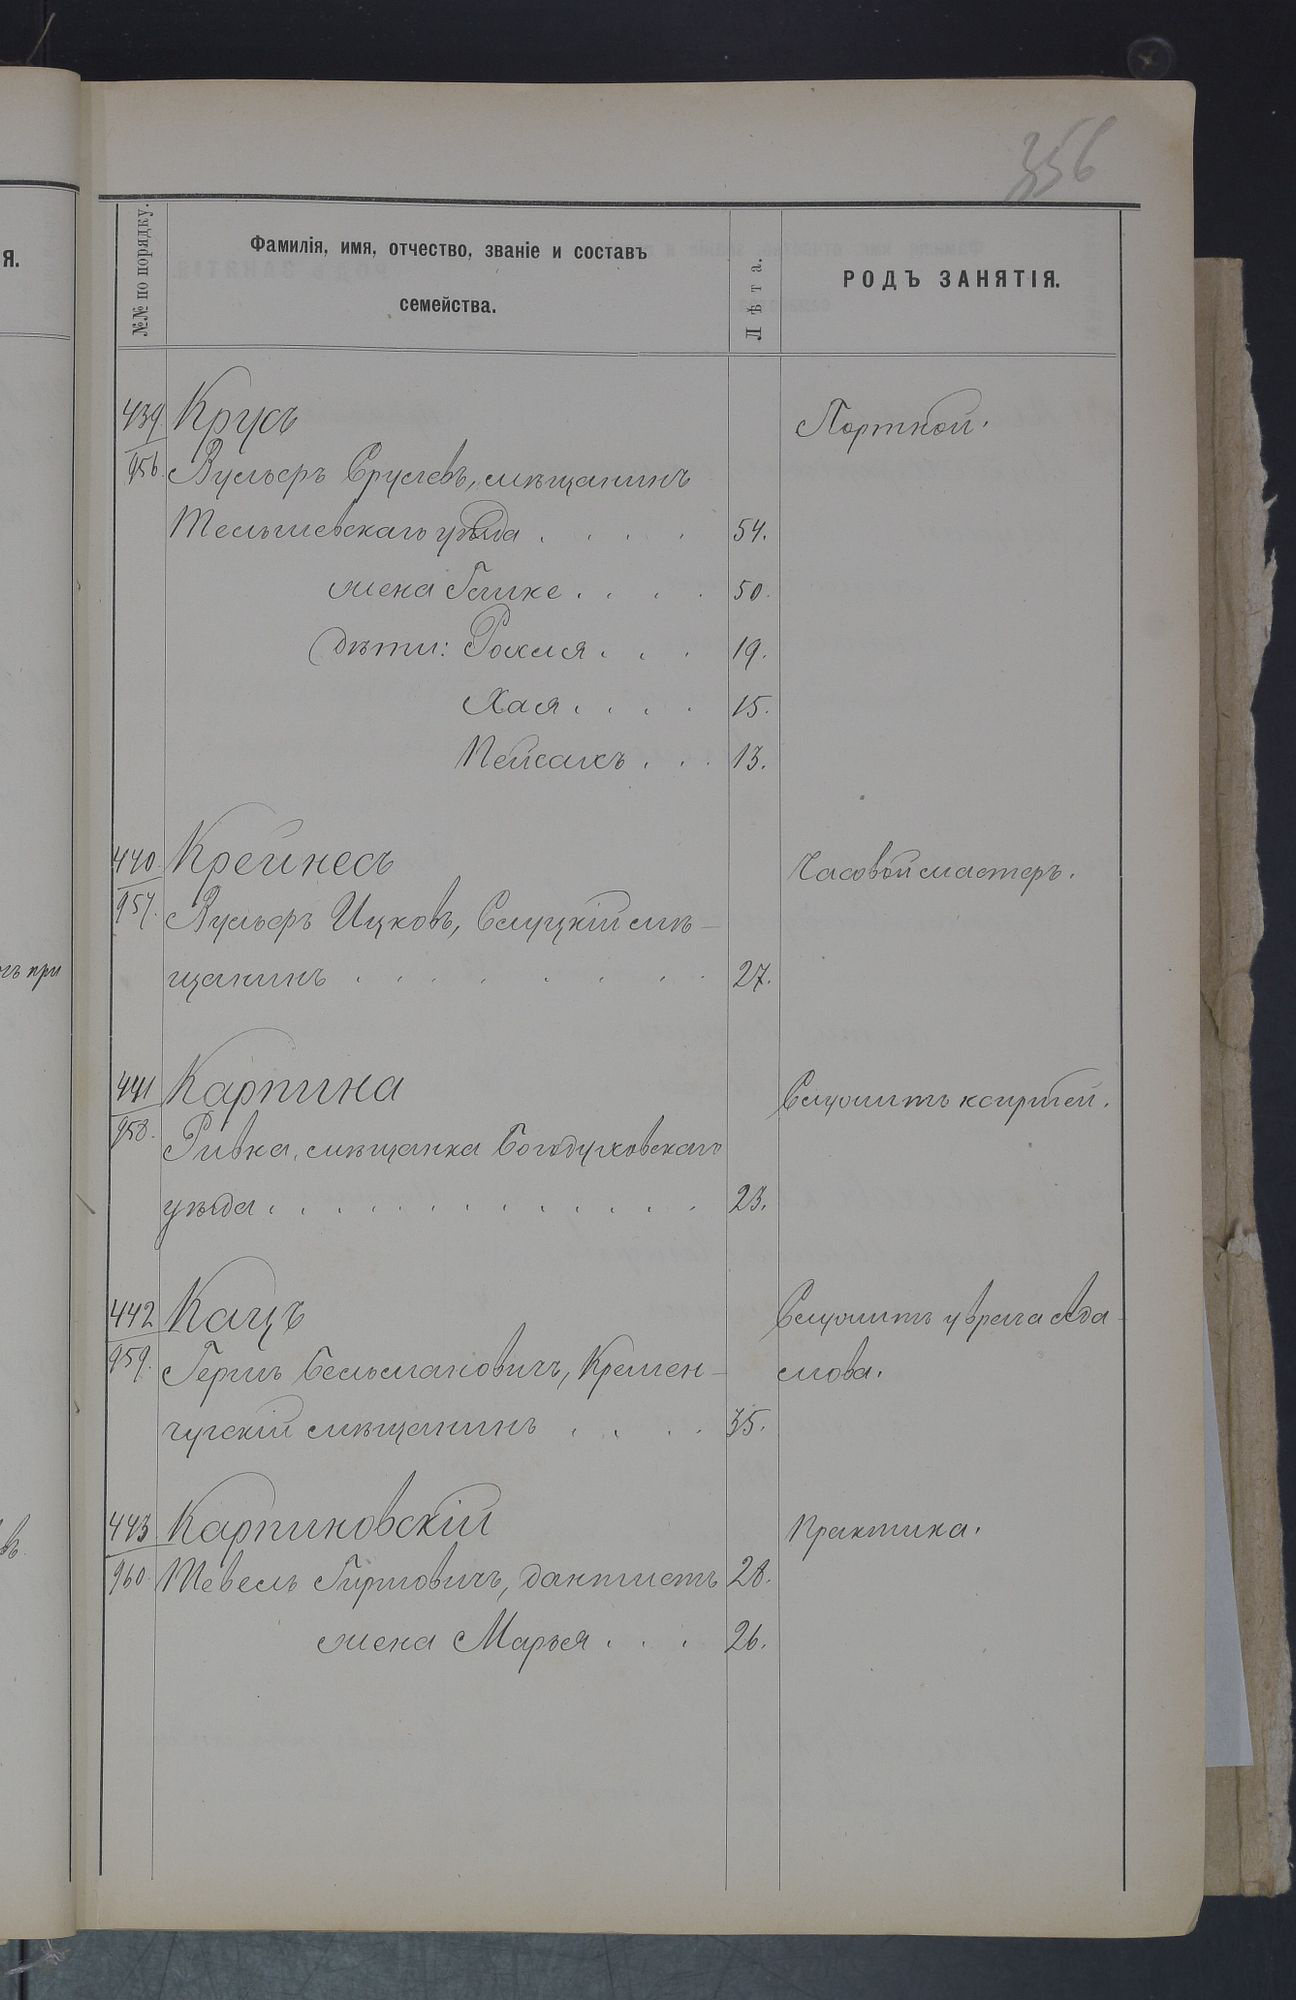 356
я.
№№ по порядку.
Фамилія, имя, отчество, званіе и составъ
семейства.
Лѣта.
РОДЪ ЗАНЯТІЯ.
439 Крусъ Портной.
956. Вульфъ Сруліевъ, мѣщанинъ
Тельшевскаго уѣзда . . . . 54.
жена Гишке . . . . 50.
Дѣти: Рохля . . . 19.
Хая . . . . 15.
Пейсахъ . . . 13.
440. Крейнесъ Часовой мастеръ.
957. Вульфъ Ицковъ, Слуцкій мѣ-
щанинъ . . . . . . . 27.
441 Карпина Служитъ
958. Ривка, мѣщанка Богодуховскаго
уѣзда . . . . . . . . . . . . 23.
442 Кацъ Служитъ у врача Ада-
959. Герцъ Кремен- мова.
чугскій мѣщанинъ . . . . 35.
443 Карпиновскій Практика.
960. Тевель Гиршовичъ, дантистъ 28.
жена Марья . . . 26.
гъ при
въ